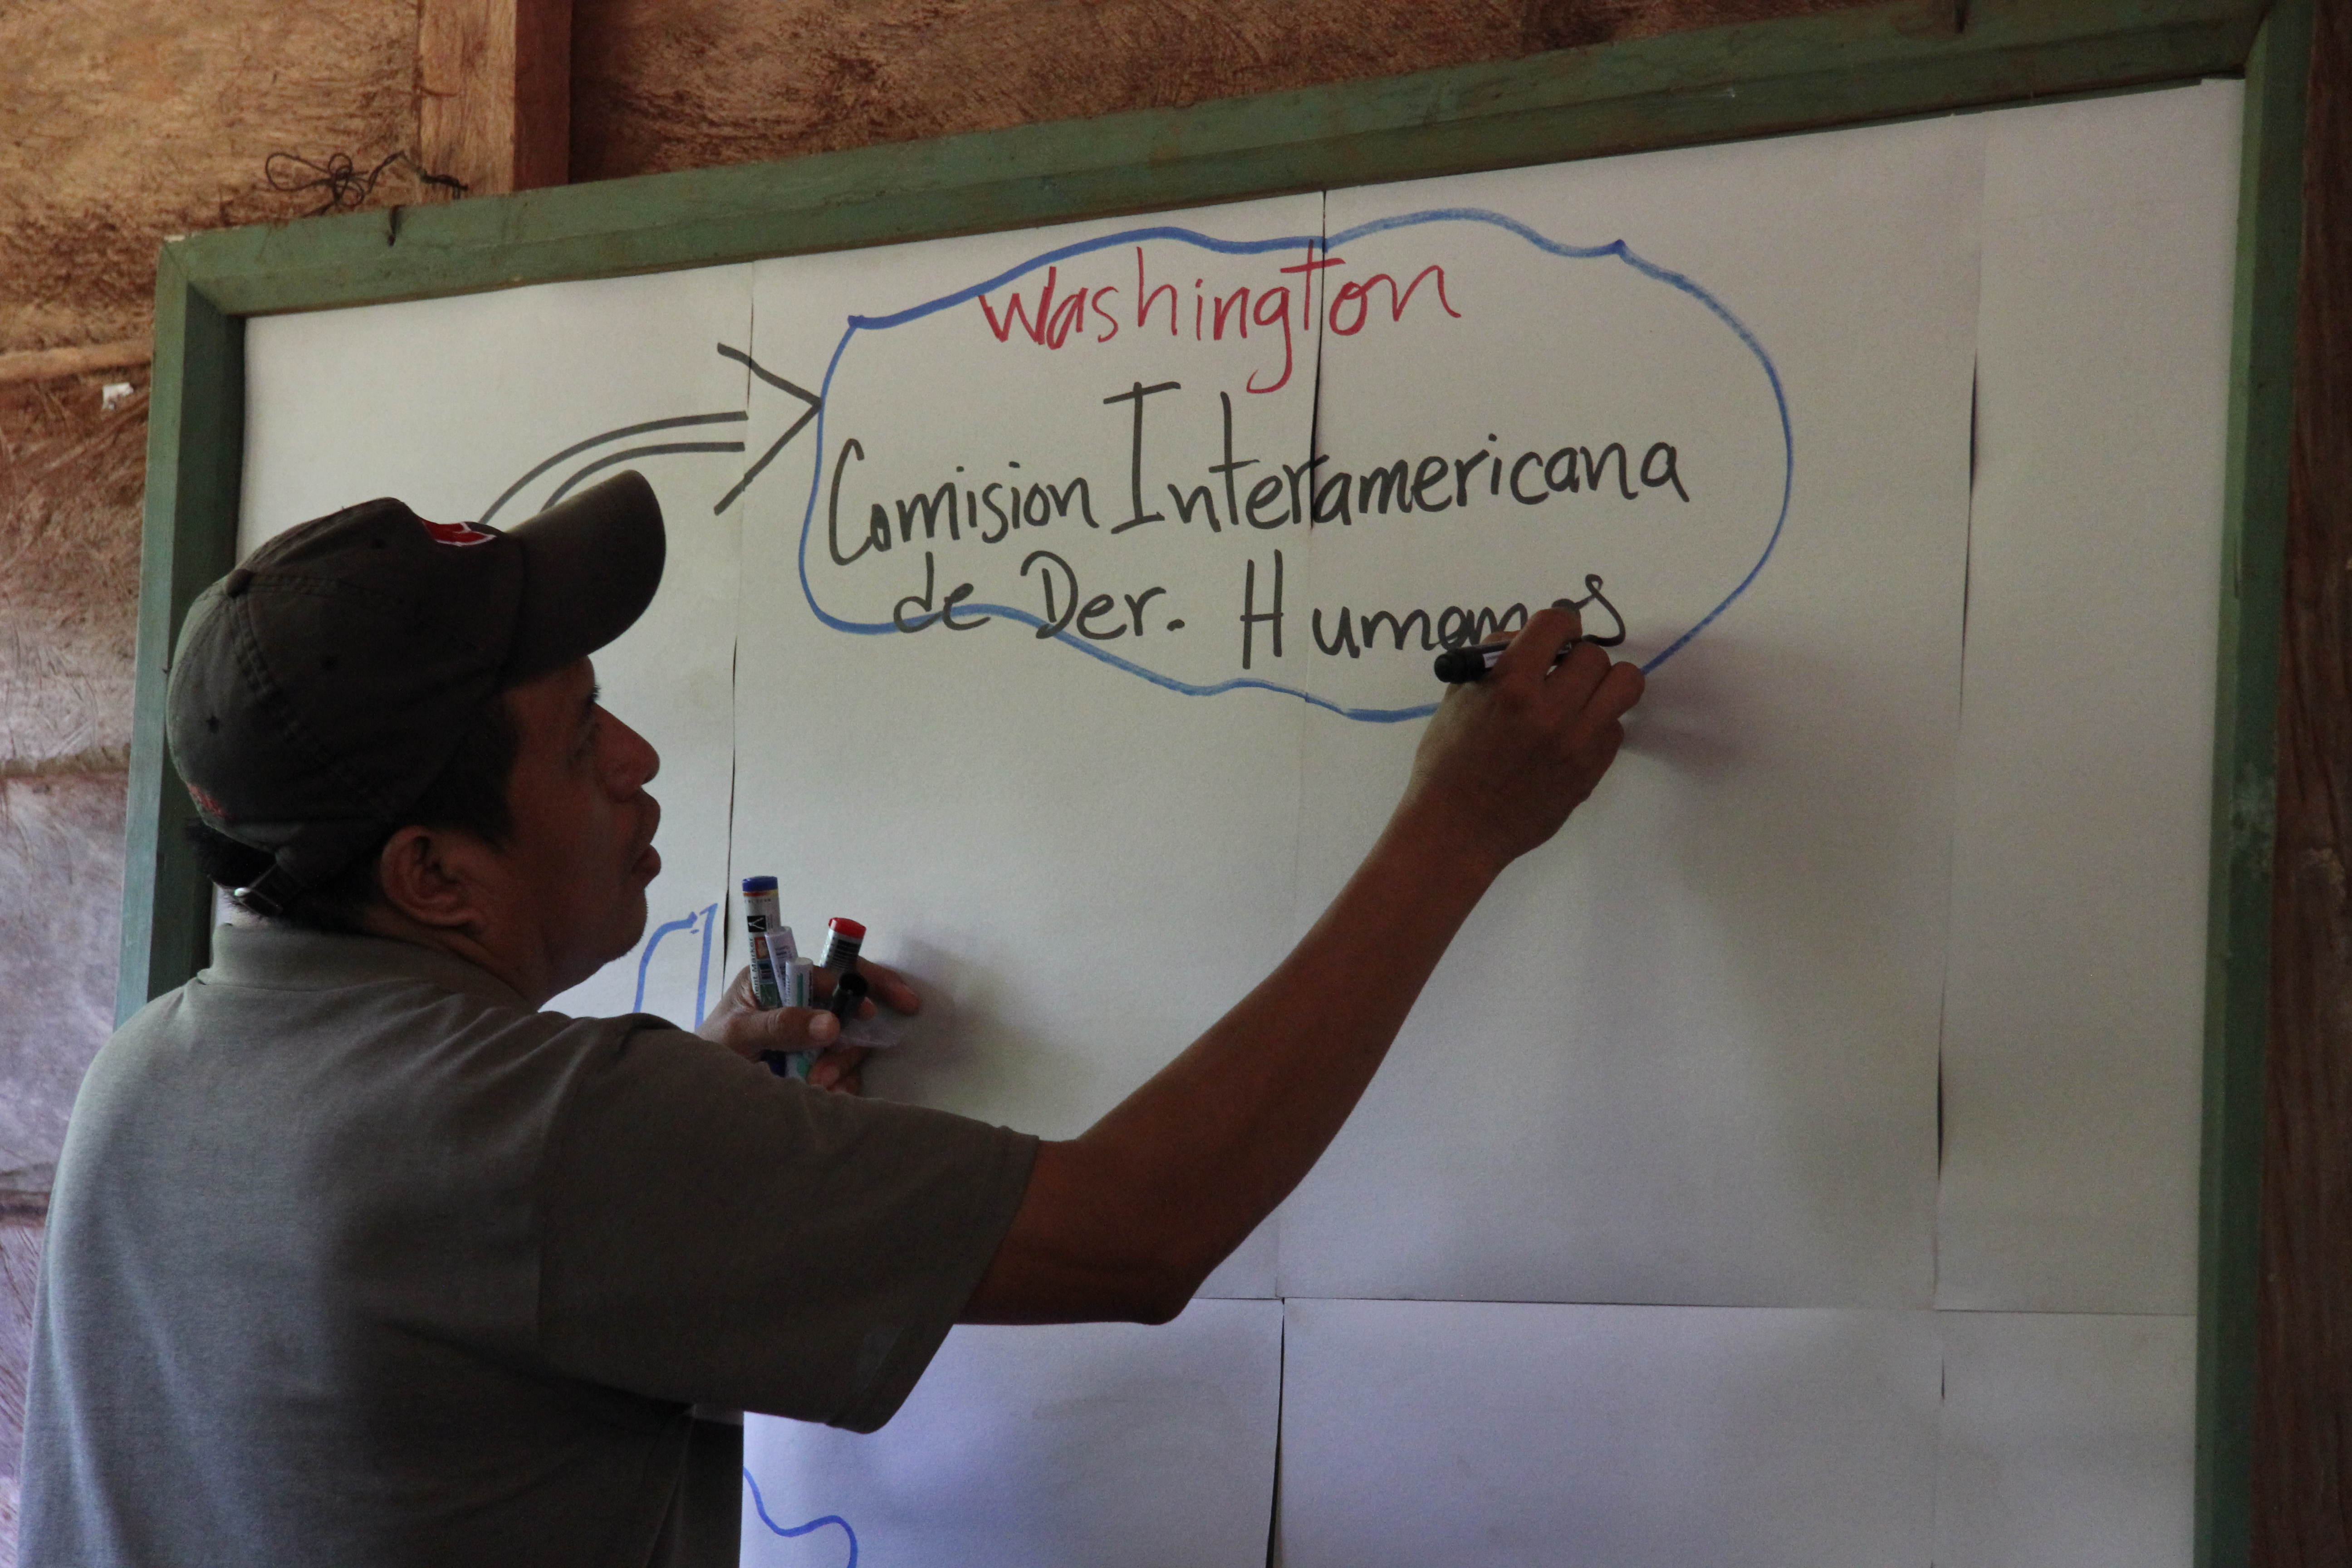 Washington
Comision Interamericana
de Der. Humanos